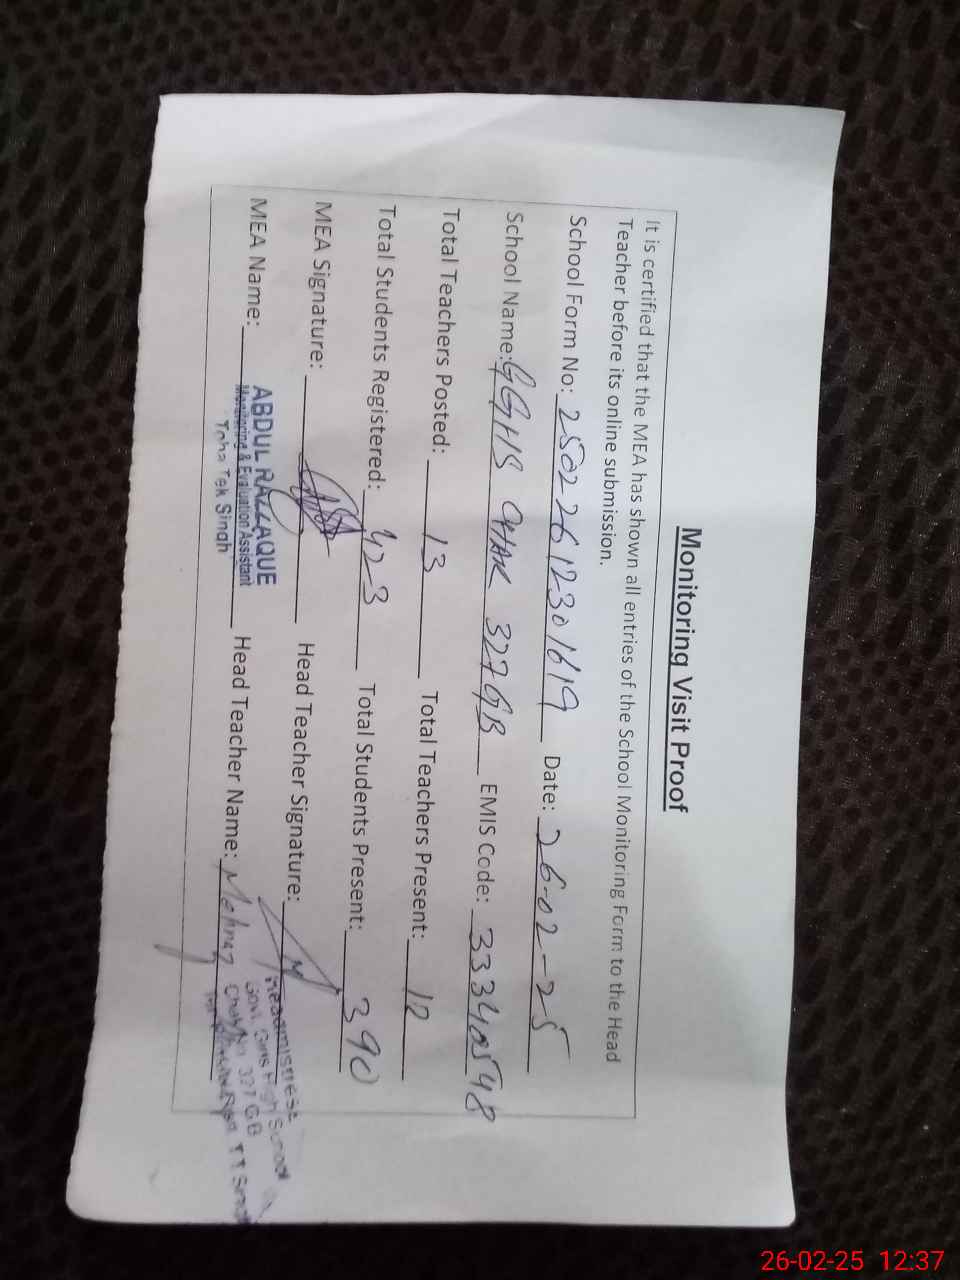 Monitoring Visit Proof
It is certified that the MEA has shown all entries of the School Monitoring Form to the Head
Teacher before its online submission.
School Form No: 25022612301619 Date: 26-02-25
School Name: GGHS CHAK 327GB EMIS Code: 33340548
Total Teachers Posted: 13 Total Teachers Present: 12
Total Students Registered: 423 Total Students Present: 390
MEA Signature: Head Teacher Signature:
MEA Name: ABDUL RAZZAQUE Head Teacher Name: Mehnaz
Monitoring & Evaluation Assistant
Toba Tek Singh
Headmistress
Govt. Girls High School
Chak No 327 GB
26-02-25 12:37